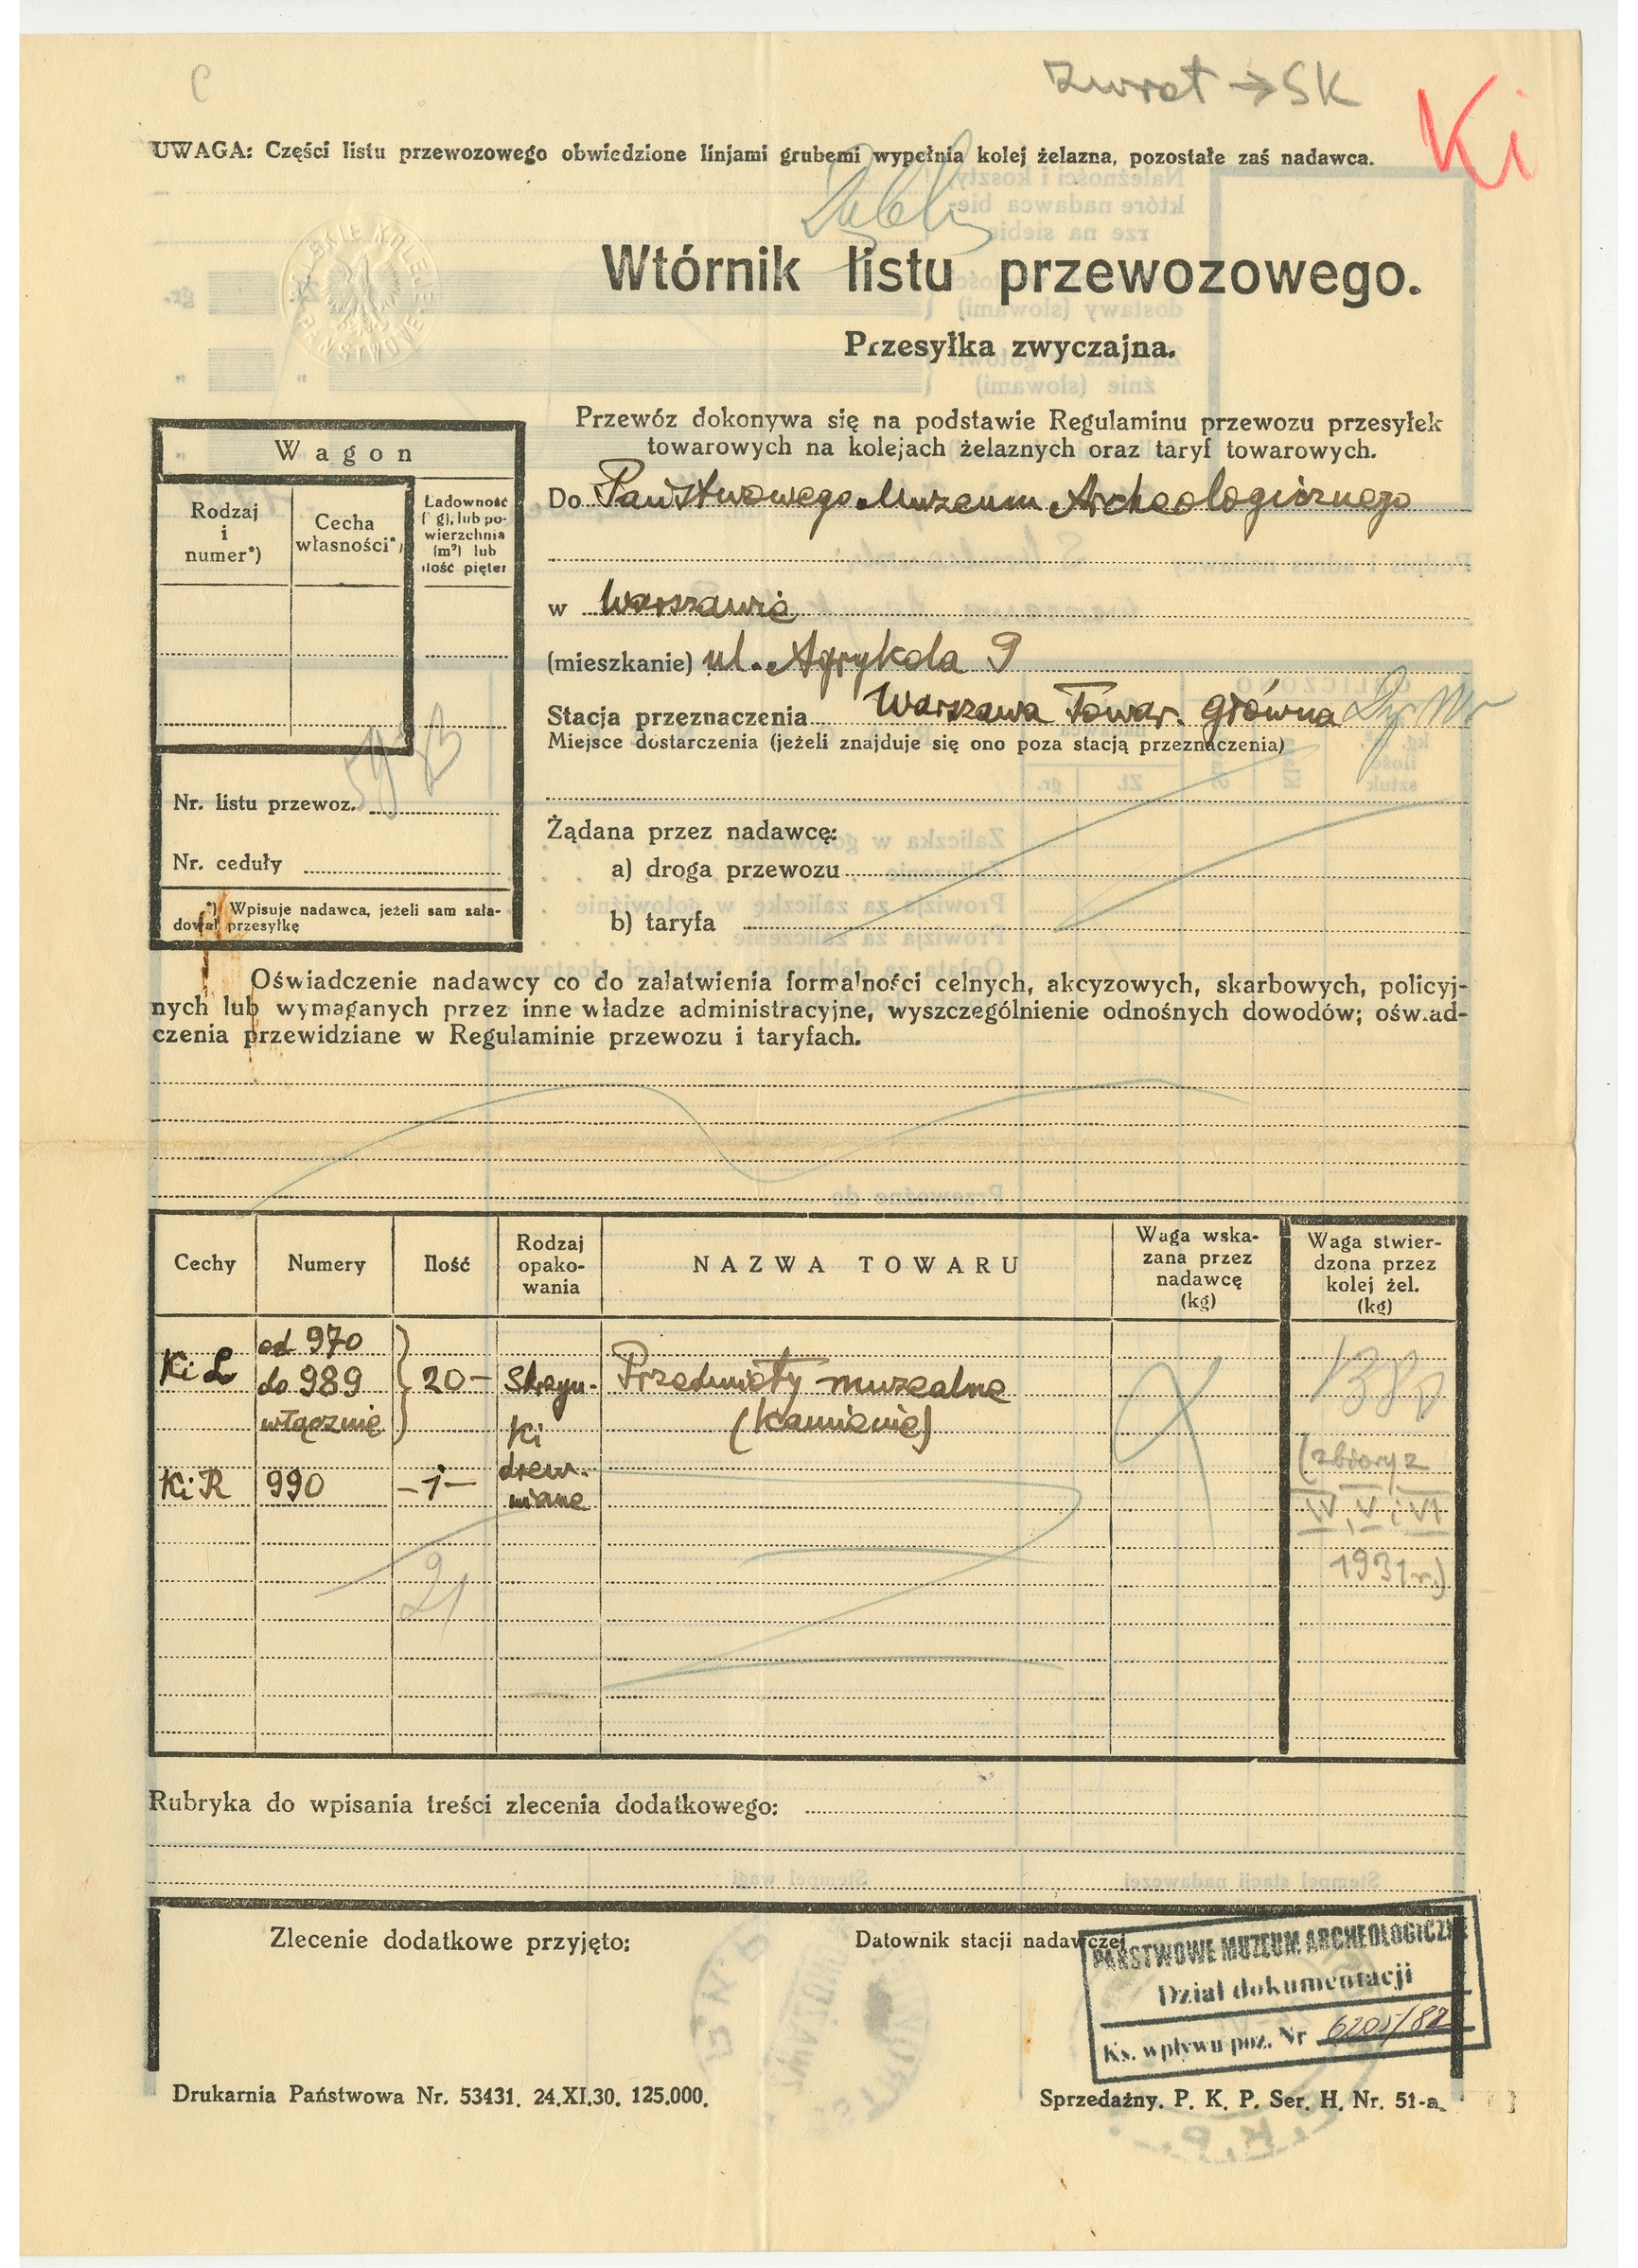 C
Zwrot → SK
Ki
UWAGA: Części listu przewozowego obwiedzione linjami grubemi wypełnia kolej żelazna, pozostałe zaś nadawca.
POLSKIE KOLEJE PAŃSTWOWE
Wtórnik listu przewozowego.
Przesyłka zwyczajna.
Przewóz dokonywa się na podstawie Regulaminu przewozu przesyłek
towarowych na kolejach żelaznych oraz taryf towarowych.
Wagon
Rodzaj
i
numer*)
Cecha
własności*)
Ładowność
( g), lub po-
wierzchnia
(m²) lub
ilość pięter
Nr. listu przewoz.
Nr. ceduły
*) Wpisuje nadawca, jeżeli sam zała-
dował przesyłkę
Do Państwowego Muzeum Archeologicznego
w Warszawie
(mieszkanie) ul. Agrykola 9
Stacja przeznaczenia Warszawa Towar. główna
Miejsce dostarczenia (jeżeli znajduje się ono poza stacją przeznaczenia)
Żądana przez nadawcę:
a) droga przewozu
b) taryfa
Oświadczenie nadawcy co do załatwienia formalności celnych, akcyzowych, skarbowych, policyj-
nych lub wymaganych przez inne władze administracyjne, wyszczególnienie odnośnych dowodów; oświad-
czenia przewidziane w Regulaminie przewozu i taryfach.
Cechy
Numery
Ilość
Rodzaj
opako-
wania
NAZWA TOWARU
Waga wska-
zana przez
nadawcę
(kg)
Waga stwier-
dzona przez
kolej żel.
(kg)
Ki L
od 970
do 989
włącznie
20-
Skrzyn-
ki
drew-
niane
Przedmioty muzealne
(kamienie)
Ki R
990
-1-
21
(zbiory z
IV, V i VI
1931 r.)
Rubryka do wpisania treści zlecenia dodatkowego:
Zlecenie dodatkowe przyjęto:
Datownik stacji nadawczej
PAŃSTWOWE MUZEUM ARCHEOLOGICZNE
Dział dokumentacji
Ks. wpływu poz. Nr 6205/82
Drukarnia Państwowa Nr. 53431. 24.XI.30. 125.000.
Sprzedażny. P. K. P. Ser. H. Nr. 51-a.